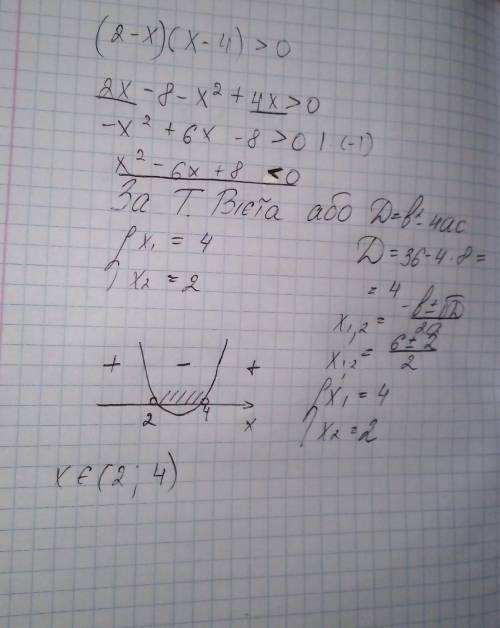 (2-x)(x-4)>0
2x-8-x²+4x>0
-x²+6x-8>0 | (-1)
x²-6x+8 <0
За Т. Вієта або D=b²-4ac
{ x₁ = 4
x₂ = 2
D=36-4·8=
= 4
x₁,₂ = -b±√D/2a
x₁,₂ = 6±2/2
{ x₁ = 4
x₂ = 2
+ - +
2 4 x
x∈(2; 4)